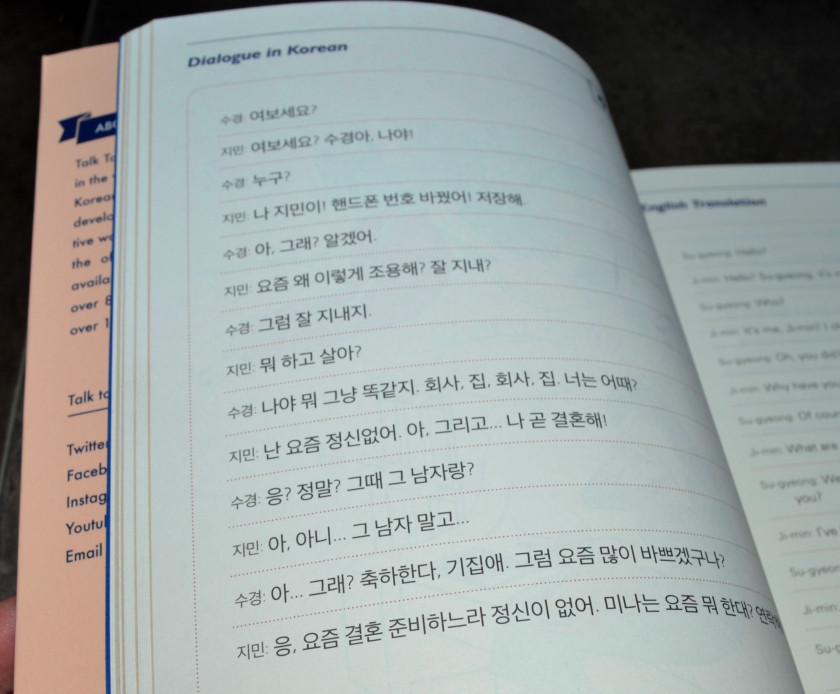 Dialogue in Korean
수경: 여보세요?
지민: 여보세요? 수경아, 나야!
수경: 누구?
지민: 나 지민이! 핸드폰 번호 바꿨어! 저장해.
수경: 아, 그래? 알겠어.
지민: 요즘 왜 이렇게 조용해? 잘 지내?
수경: 그럼 잘 지내지.
지민: 뭐 하고 살아?
수경: 나야 뭐 그냥 똑같지. 회사, 집, 회사, 집. 너는 어때?
지민: 난 요즘 정신없어. 아, 그리고... 나 곧 결혼해!
수경: 응? 정말? 그때 그 남자랑?
지민: 아, 아니... 그 남자 말고...
수경: 아... 그래? 축하한다, 기집애. 그럼 요즘 많이 바쁘겠구나?
지민: 응, 요즘 결혼 준비하느라 정신이 없어. 미나는 요즘 뭐 한대?
Talk
in the
Korean
tive
the
over
over
Talk
Email
English Translation
Su-gyeong: Hello?
Ji-min: Hello? Su-gyeong, It's
Su-gyeong: Who?
Ji-min: It's me, Ji-min! I
Su-gyeong: Oh, you
Ji-min: Why have
Su-gyeong: Of
Ji-min: What are
Su-gyeong:
you?
Ji-min: I've
Ji-min: